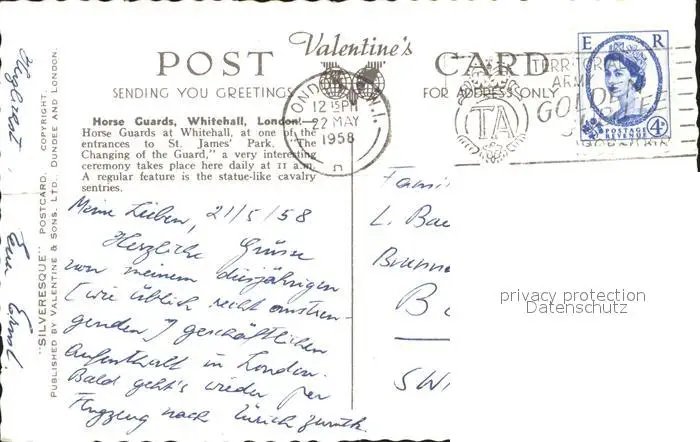 POST Valentine's CARD
SENDING YOU GREETINGS
FOR ADDRESS ONLY
Horse Guards, Whitehall, London.—
Horse Guards at Whitehall, at one of the
entrances to St. James' Park. "The
Changing of the Guard," a very interesting
ceremony takes place here daily at 11 a.m.
A regular feature is the statue-like cavalry
sentries.
Meine Lieben, 21/5/58
Herzliche Grüsse
von meinem diesjährigen
(wie üblich recht anstren-
genden) geschäftlichen
Aufenthalt in London.
Bald geht's wieder per
Flugzeug nach Zürich zurück.
Euer
"SILVERESQUE" POSTCARD. COPYRIGHT.
PUBLISHED BY VALENTINE & SONS, LTD. DUNDEE AND LONDON.
LONDON N.I.
12 15 PM
22 MAY
1958
TERRITORIAL
ARMY
GOLDEN
TA
E R
POSTAGE
REVENUE
4D
Fami
L. Bau
Brunn
B
SWI
privacy protection
Datenschutz